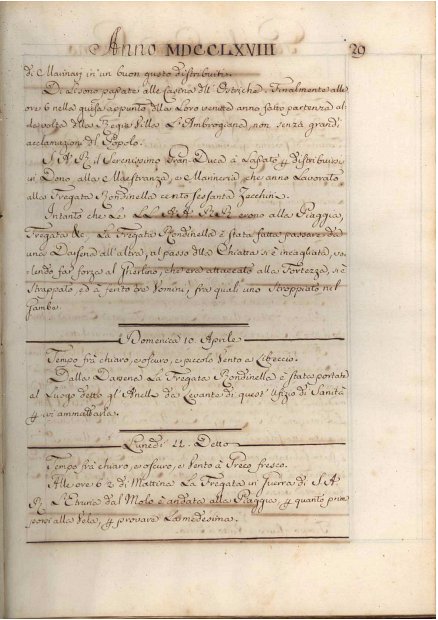 Anno MDCCLXVIII 29
di Marinarj in un buon gusto distribuiti.
Di lì sono passate alle Casina dll' Ostriche. Finalmente alle
ore 6 nella guisa appunto dlla Loro venuta anno fatto partenza al
la volta dlla Regia Villa L'Ambrogiana, non senza grandi
acclamazioni dl Popolo.
S. A. R. il Serenissimo Gran-Duca à Lasciato p distribuire
in Dono alla Maestranza, e Marineria, che anno Lavorato
alla Fregata Rondinella cento sessanta Zecchini.
Intanto che Le LL. AA. RR. erono alla Piaggia,
Fregata &c. La Fregata Rondinella è stata fatta passare da
una Darsena all'altra, al passo dlla Chiatta si è incagliata, vo-
lendo far forza al che era attaccato alla Fortezza, si è
strappato, ed à ferito tre Uomini, fra quali uno Stroppiato nel
Domenica 10. Aprile
Tempo frà chiaro, e oscuro, e piccolo Vento a Libeccio.
Dalla Darsena La Fregata Rondinella è stata portata
al Luogo detto gl'Anelli da Levante di quest'Ufizio di Sanità
p ivi ammalbarla.
Lunedì 11. Detto
Tempo frà chiaro, e oscuro, e Vento à Greco fresco.
Alle ore 6 2 di Mattina La Fregata in Guerra di S. A.
R. L'Etruria dal Molo è andata alla Piaggia, p quanto prima
porsi alla Vela, p provare La medesima.